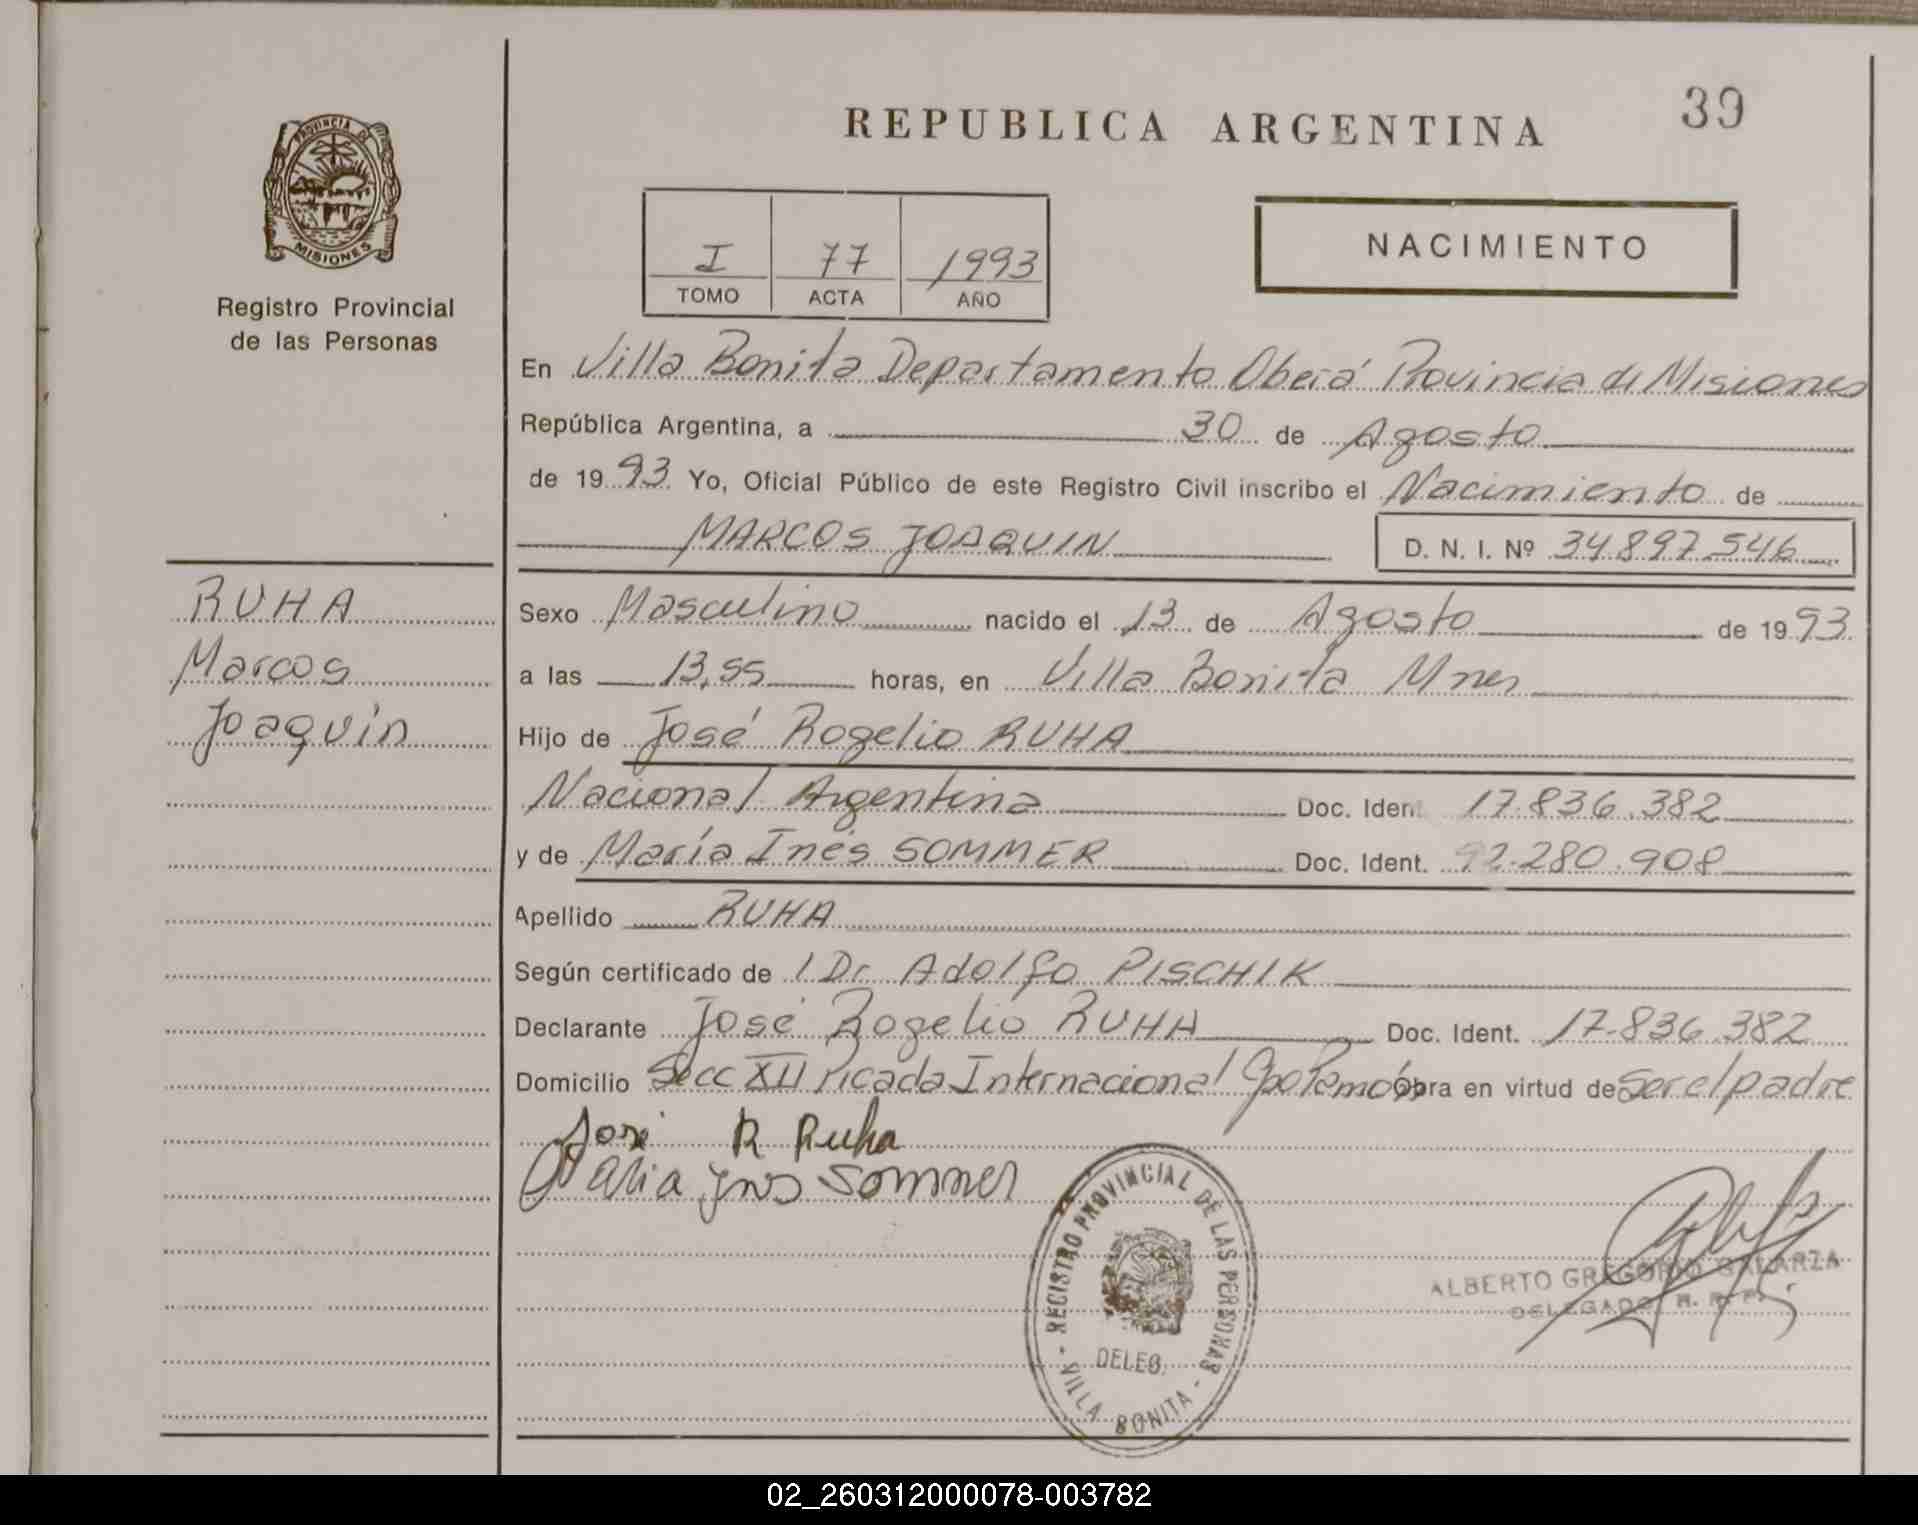 39
REPUBLICA ARGENTINA
PROVINCIA DE
MISIONES
Registro Provincial
de las Personas
I 77 1993
TOMO ACTA AÑO
NACIMIENTO
En Villa Bonita Departamento Oberá Provincia de Misiones
República Argentina, a 30 de Agosto
de 1993 Yo, Oficial Público de este Registro Civil inscribo el Nacimiento de
MARCOS JOAQUIN D. N. I. Nº 34897546
RUHA
Marcos
Joaquín
Sexo Masculino nacido el 13 de Agosto de 1993
a las 13,55 horas, en Villa Bonita Mnes
Hijo de José Rogelio RUHA
Nacional Argentina Doc. Ident. 17.836.382
y de María Inés SOMMER Doc. Ident. 92.280.908
Apellido RUHA
Según certificado de l Dr. Adolfo PISCHIK
Declarante José Rogelio RUHA Doc. Ident. 17.836.382
Domicilio Secc XII Picada Internacional Gpo Pamón obra en virtud de Ser el padre
José R Ruha
Maria Ynes Sommer
REGISTRO PROVINCIAL DE LAS PERSONAS
DELEG.
VILLA BONITA
ALBERTO GREGORIO GALARZA
DELEGADO R. P. P.
02_260312000078-003782